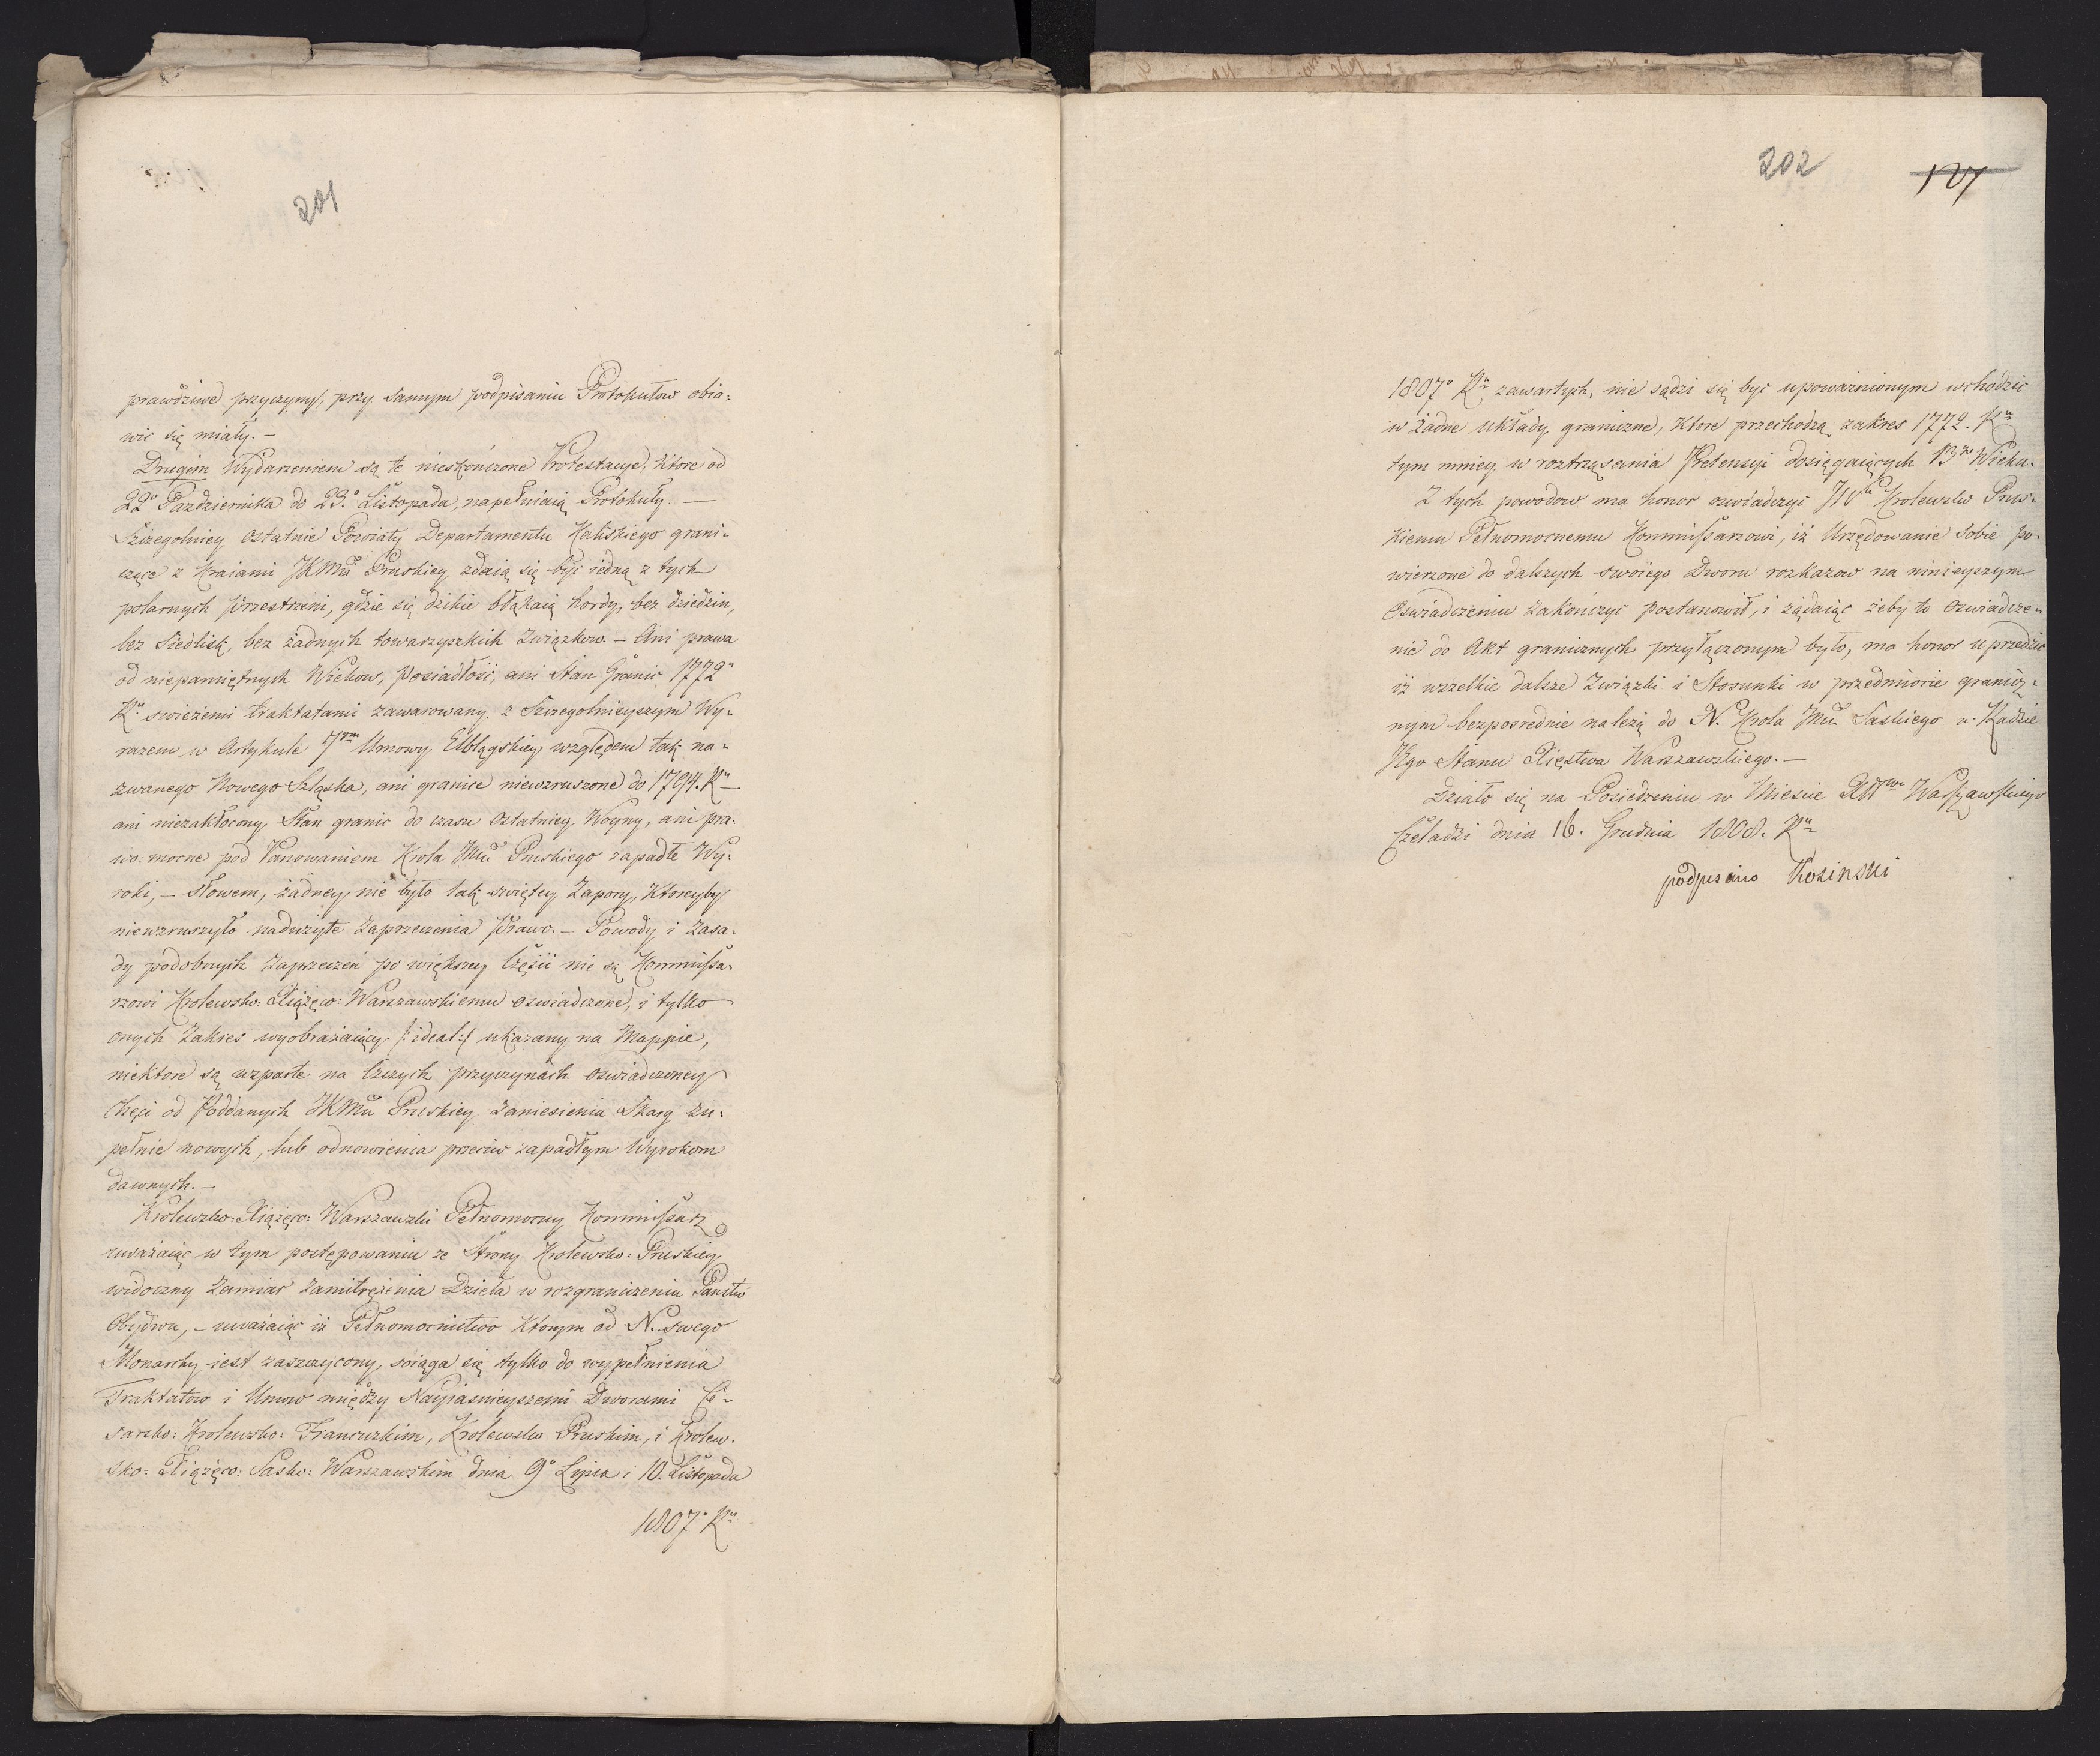 201
prawdziwe przyczyny, przy samym podpisaniu Protokułow obia-
wić się miały. —
Drugim Wydarzeniem są te nieskończone Protestacye, ktore od
22º Pazdziernika do 23º Listopada, napełniaią Protokuły. —
Szczegolniey ostatnie Powiaty Departamentu Kaliskiego grani-
czące z Kraiami JKMci Pruskiey zdaią się być iedną z tych
polarnych przestrzeni, gdzie się dzikie błąkaią hordy, bez dziedzin,
bez Siedlisk, bez żadnych towarzyskich Związkow. — Ani prawa
od niepamiętnych Wiekow, posiadłość, ani Stan Granic 1772º
Ru swieżemi traktatami zawarowany z Szczegolnieyszym Wy-
razem w Artykule 7ym Umowy Elblągskiey względem tak na-
zwanego Nowego Szląska, ani granice niewzruszone do 1794. Ru
ani niezakłocony Stan granic do czasu ostatniey Woyny, ani pra-
wo-mocne pod Panowaniem Krola Jmci Pruskiego zapadłe Wy-
roki, — słowem, żadney nie było tak swiętey Zapory, ktoreyby
niewzruszyło nadużyte Zaprzeczenia Prawo. — Powody i Zasa-
dy podobnych Zaprzeczeń po większey Części nie są Kommissa-
rzowi Krolewsko: Xiążęco: Warszawskiemu oswiadczone, i tylko
onych Zakres wyobrażaiący /: ideal :/ ukazany na Mappie,
niektore są wsparte na Czczych przyczynach oswiadczoney
Chęci od Poddanych JKMci Pruskiey Zaniesienia Skarg zu-
pełnie nowych, lub odnowienia przeciw zapadłym Wyrokom
dawnych. —
Krolewsko: Xiążęco: Warszawski Pełnomocny Kommissarz
uważaiąc w tym postępowaniu ze Strony Krolewsko: Pruskiey
widoczny Zamiar Zamitrężenia Dzieła w rozgraniczeniu Państw
Obydwu, — uważaiąc iż Pełnomocnictwo ktorym od N. swego
Monarchy iest zaszczycony, sciąga się tylko do wypełnienia
Traktatow i Umow między Nayiasnieyszemi Dworami Ce-
sarsko: Krolewsko: Francuzkim, Krolewsko Pruskim, i Krolew-
sko: Xiążęco: Sasko: Warszawskim dnia 9º Lipca i 10. Listopada
1807º Ru
202
127
1807º Ru zawartych, nie sądzi się być upoważnionym wchodzić
w żadne układy graniczne, ktore przechodzą zakres 1772. Ru
tym mniey w roztrząsania Pretensyi dosięgaiących 13go Wieku.
Z tych powodow ma honor oswiadczyć JW Krolewsko Prus-
kiemu Pełnomocnemu Kommissarzowi, iż Urzędowanie sobie po-
wierzone do dalszych swoiego Dworu rozkazow na ninieyszym
Oswiadczeniu zakończyć postanowił, i żądaiąc żeby to oswiadcze-
nie do Akt granicznych przyłączonym było, ma honor uprzedzić
iż wszelkie dalsze Związki i Stosunki w przedmiocie granicz-
nym bezposrednie należą do N. Krola Jmci Saskiego w Radzie
Jego Stanu Xięstwa Warszawskiego. —
Działo się na Posiedzeniu w Miescie Warszawskiego
Czeladzi dnia 16. Grudnia 1808. Ru
podpisano Kosinski